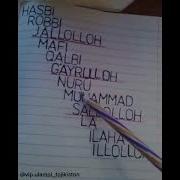 HASBI
ROBBI
JALLOLLOH
MAFI
QALBI
GAYRULLOH
NURU
MUHAMMAD
SALLOLLOH
LA
ILAHA
ILLOLLOH
@vip.ulamoi_tojikiston